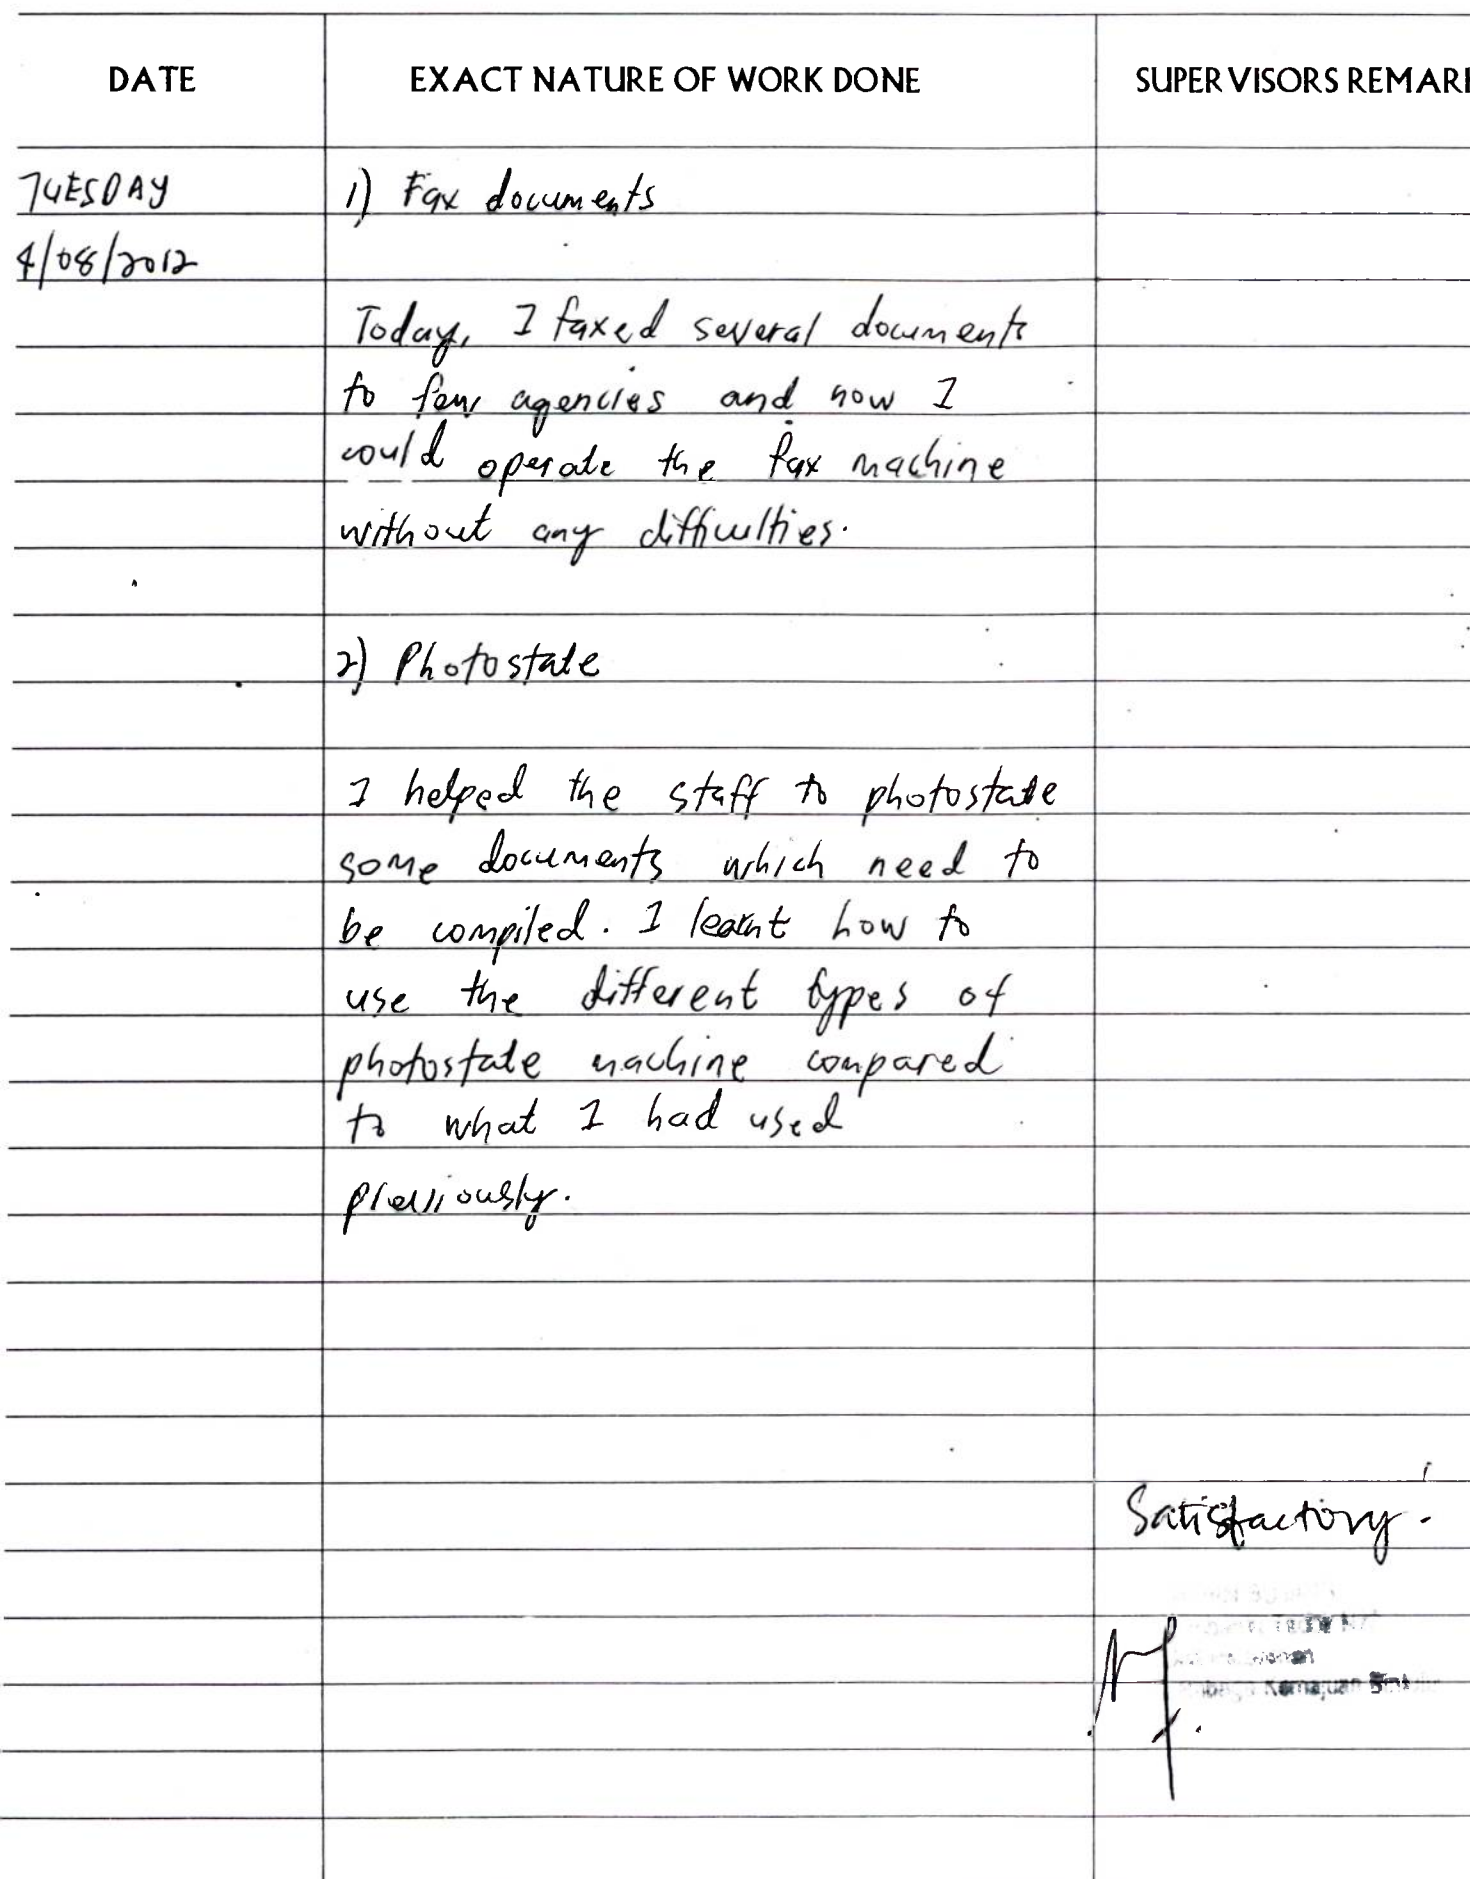 DATE
EXACT NATURE OF WORK DONE
SUPERVISORS REMAR
TUESDAY
4/08/2012
1) Fax documents
Today, I faxed several documents
to few agencies and now I
could operate the fax machine
without any difficulties.
2) Photostate
I helped the staff to photostate
some documents which need to
be compiled. I learnt how to
use the different types of
photostate machine compared
to what I had used
previously.
Satisfactory.
Kemajuan